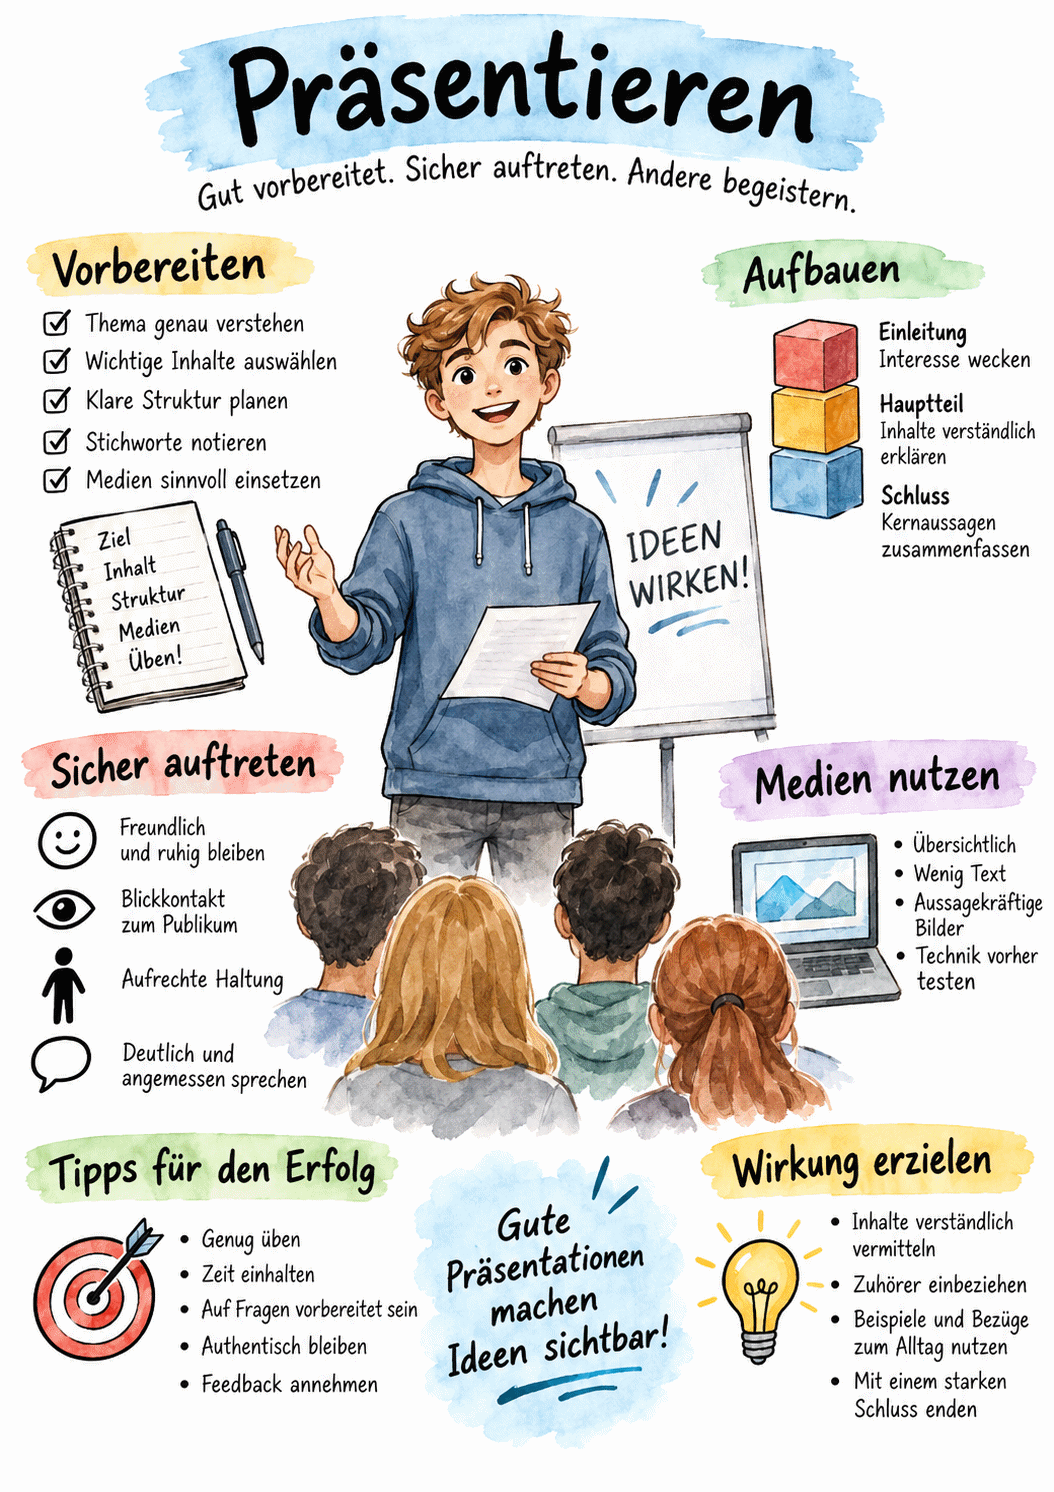 Präsentieren
Gut vorbereitet. Sicher auftreten. Andere begeistern.
Vorbereiten
Thema genau verstehen
Wichtige Inhalte auswählen
Klare Struktur planen
Stichworte notieren
Medien sinnvoll einsetzen
Ziel
Inhalt
Struktur
Medien
Üben!
IDEEN
WIRKEN!
Aufbauen
Einleitung
Interesse wecken
Hauptteil
Inhalte verständlich
erklären
Schluss
Kernaussagen
zusammenfassen
Sicher auftreten
Freundlich
und ruhig bleiben
Blickkontakt
zum Publikum
Aufrechte Haltung
Deutlich und
angemessen sprechen
Medien nutzen
• Übersichtlich
• Wenig Text
• Aussagekräftige
Bilder
• Technik vorher
testen
Tipps für den Erfolg
• Genug üben
• Zeit einhalten
• Auf Fragen vorbereitet sein
• Authentisch bleiben
• Feedback annehmen
Gute
Präsentationen
machen
Ideen sichtbar!
Wirkung erzielen
• Inhalte verständlich
vermitteln
• Zuhörer einbeziehen
• Beispiele und Bezüge
zum Alltag nutzen
• Mit einem starken
Schluss enden